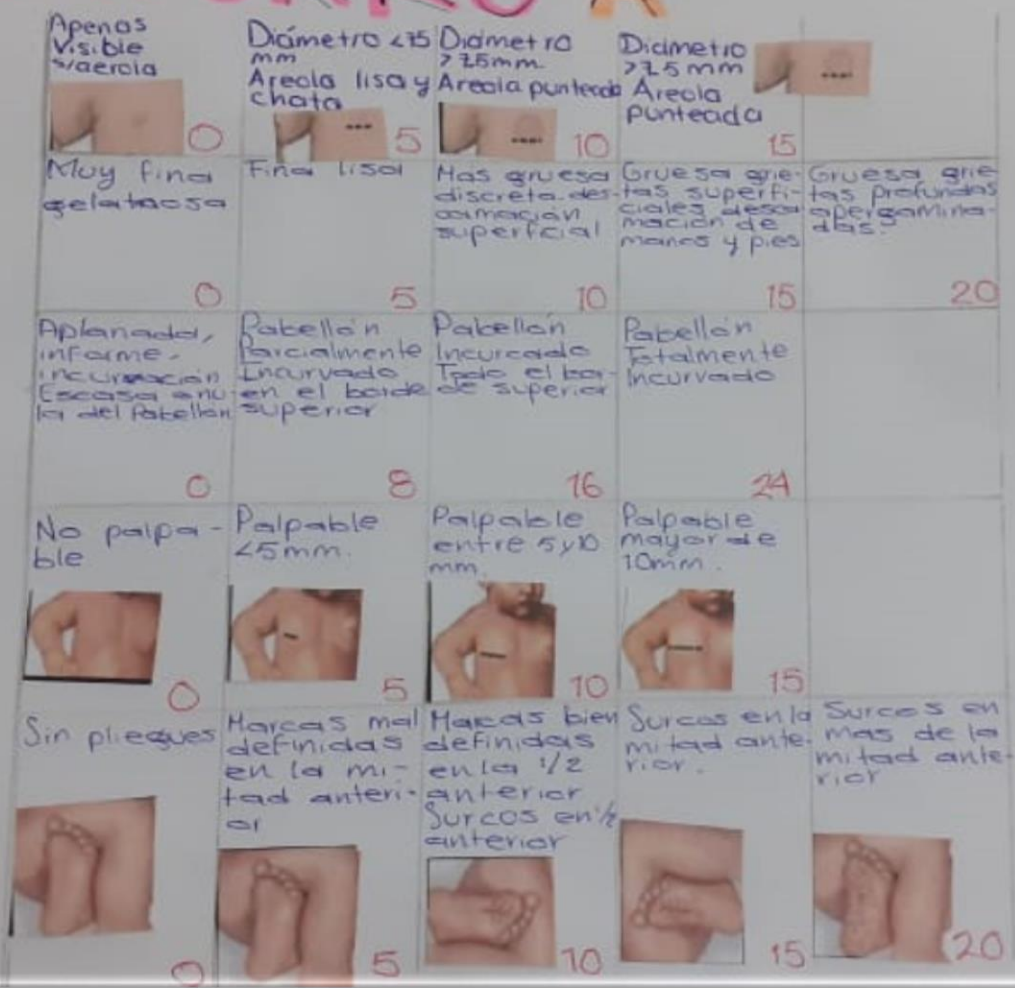 Apenas
Visible
s/aerola
0
Diámetro <75
mm
Areola lisa y
chata
5
Diámetro
>7.5mm
Areola punteada
10
Diámetro
>7.5 mm
Areola
punteada
15
Muy fina
gelatnosa
0
Fina lisa
5
Mas gruesa
discreta des-
camación
superficial
10
Gruesa grie-
tas superfi-
ciales desca
mación de
manos y pies
15
Gruesa grie-
tas profundas
apergamina-
das.
20
Aplanada,
informe.
incurvación
Escasa o nu
la del Pabellón
0
Pabellón
Parcialmente
Incurvado
en el borde
superior
8
Pabellón
Incurvado
Todo el bor-
de superior
16
Pabellón
Totalmente
Incurvado
24
No palpa-
ble
0
Palpable
<5mm.
5
Palpable
entre 5 y 10
mm.
10
Palpable
mayor de
10mm.
15
Sin pliegues
0
Marcas mal
definidas
en la mi-
tad anteri-
or
5
Marcas bien
definidas
en la 1/2
anterior
Surcos en 1/2
anterior
10
Surcos en la
mitad ante-
rior.
15
Surcos en
mas de la
mitad ante-
rior
20